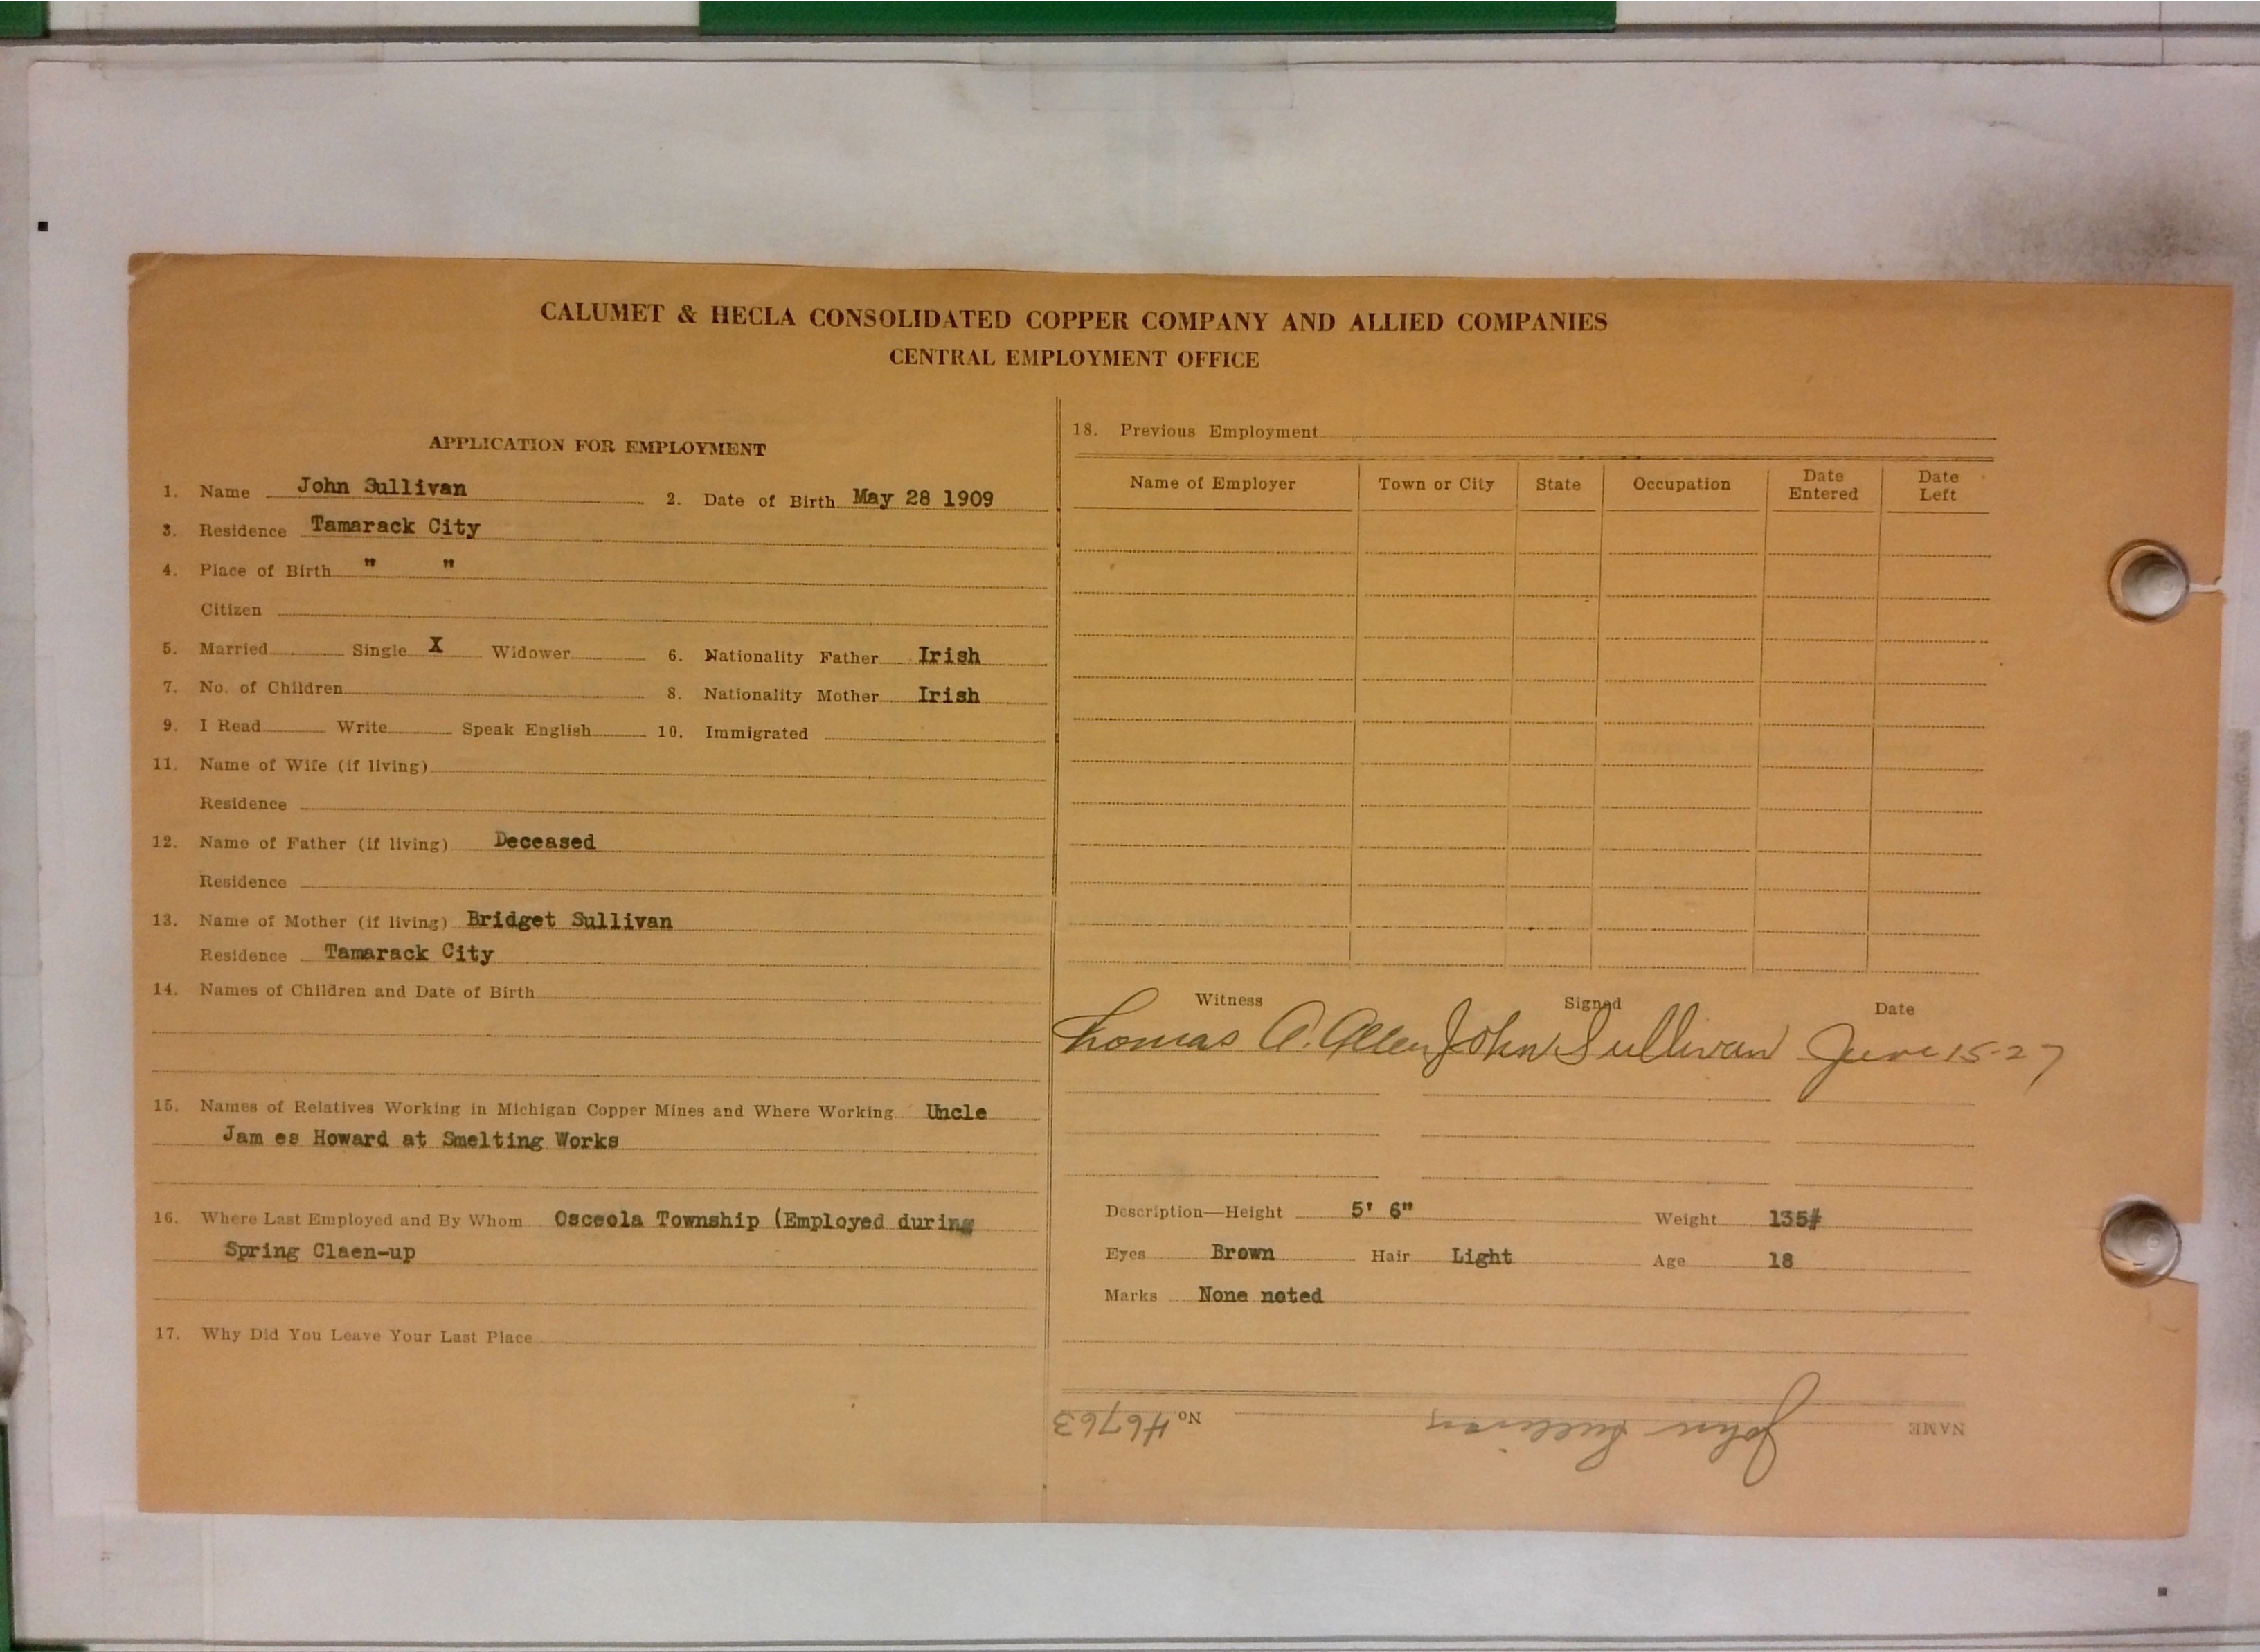 CALUMET & HECLA CONSOLIDATED COPPER COMPANY AND ALLIED COMPANIES
CENTRAL EMPLOYMENT OFFICE
APPLICATION FOR EMPLOYMENT
1. Name John Sullivan 2. Date of Birth May 28 1909
3. Residence Tamarack City
4. Place of Birth " "
Citizen
5. Married Single X Widower 6. Nationality Father Irish
7. No. of Children 8. Nationality Mother Irish
9. I Read Write Speak English 10. Immigrated
11. Name of Wife (if living)
Residence
12. Name of Father (if living) Deceased
Residence
13. Name of Mother (if living) Bridget Sullivan
Residence Tamarack City
14. Names of Children and Date of Birth
15. Names of Relatives Working in Michigan Copper Mines and Where Working Uncle
Jam es Howard at Smelting Works
16. Where Last Employed and By Whom Osceola Township (Employed during
Spring Claen-up
17. Why Did You Leave Your Last Place
18. Previous Employment
Name of Employer Town or City State Occupation Date Entered Date Left
Witness Signed Date
Thomas A. Allen John Sullivan June 15-27
Description—Height 5' 6" Weight 135#
Eyes Brown Hair Light Age 18
Marks None noted
NAME John Sullivan No. 46763